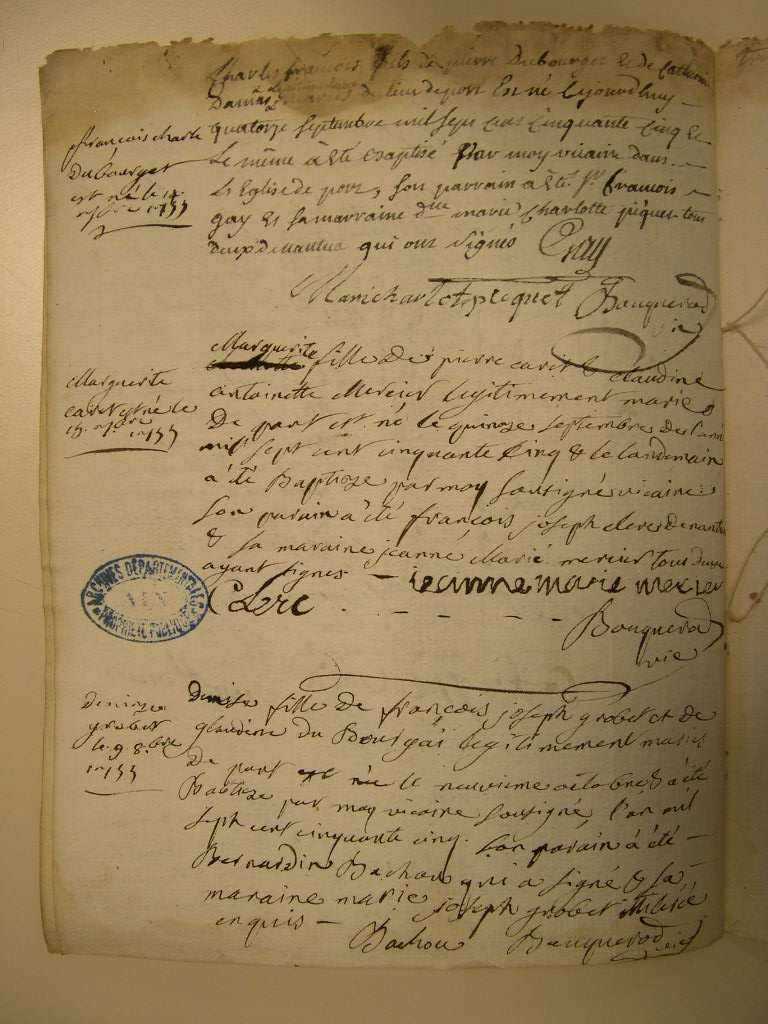 Charles françois fils de pierre Dubourget et de Catherine
Damas mariés de lieu de port Est né Cejourdhuy
françois charle
quatorze septembre mil sept cent Cinquante Cinq Et
Dubourget
Le même à été Baptisé par moy vicaire dans
est né le 14
L'Eglise de port, son parrain à été Sr francois
7bre 1755
gay Et sa marraine dlle marie Charlotte piquet tous
deux de nantua qui ont signés Gay
Marie charlote pequet Bouquerod
vic
Marguerite fille de pierre caret & claudine
Marguerite
antoinette Mercier legitimement mariés
caret est né le
De port est né le quinze septembre de l'anné
15. 7bre 1755
mil sept cent cinquante Cinq & le landemain
à été Baptize par moy sousigné vicaire
son parain à été françois joseph clerc de nantua
& sa maraine jeanne Marie mercier tous deux
ayant signes
jeanne marie mercier
Clerc
Bouquerod
vic
ARCHIVES DÉPARTEMENTALES
AIN
PROPRIÉTÉ PUBLIQUE
Denize
grobet
le 9 8.bre
1755
Denise fille de françois joseph grobet et de
glaudine du Bourgai legitimement mariés
De port est née le neuvieme octobre & à été
Baptize par moy vicaire sousigné, l'an mil
sept cent cinquante cinq. son parain à été
Bernardin Bachou qui a signé & sa
maraine marie joseph grobet illiterée
enquis
Bachou Bouquerod vic